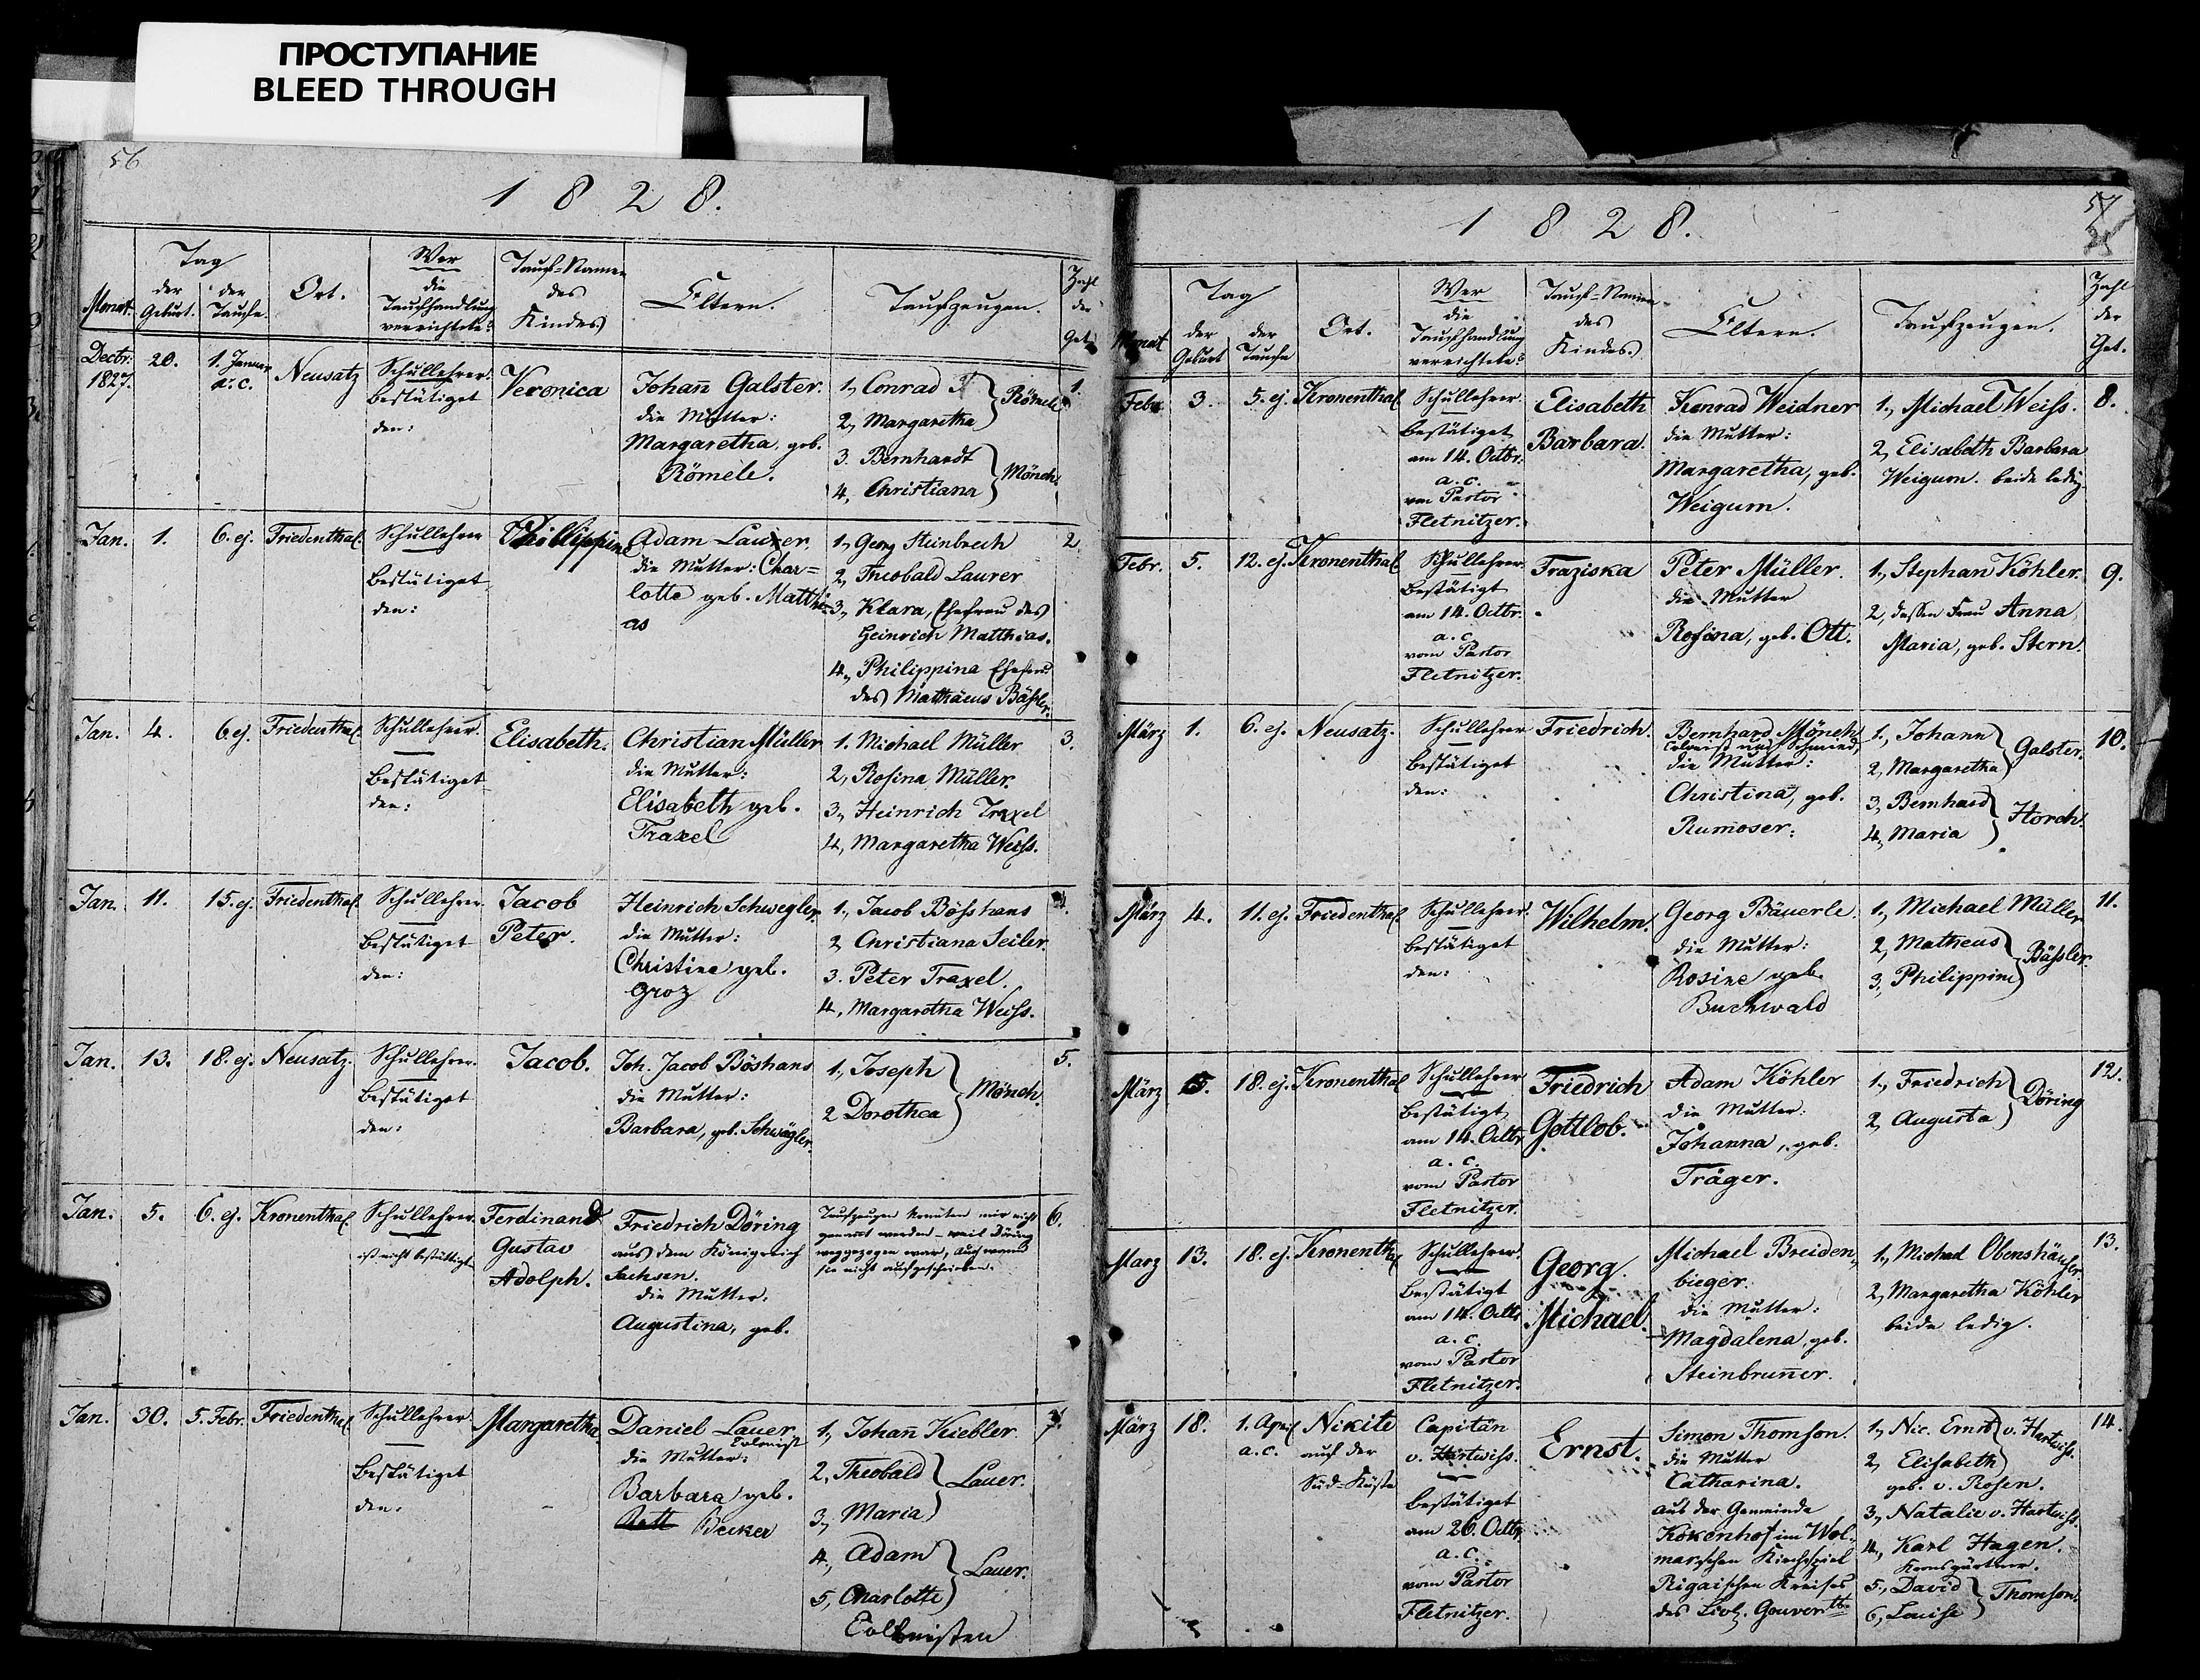 ПРОСТУПАНИЕ
BLEED THROUGH
56
1828.
Monat.
Tag
der Geburt.
der Taufe.
Ort.
Wer
die
Taufhandlung
verrichtete?
Tauf-Namen
des
Kindes
Eltern.
Taufzeugen.
Zahl
der
Get.
Decbr.
1827.
20.
1. Januar
a. c.
Neusatz
Schullehrer.
bestätiget
den:
Veronica
Johañ Galster.
die Mutter:
Margaretha, geb.
Römele.
1., Conrad
2., Margaretha
Römele
3. Bernhardt
4., Christiana
Mönch.
1.
Jan.
1.
6. ej.
Friedenthal.
Schullehrer
bestätiget
den:
Phillippine
Adam Laurer.
die Mutter: Char=
lotte geb. Matthi=
as
1., Georg Steinbrech
2., Theobald Laurer
3., Klara, Ehefrau des
Heinrich Matthias.
4., Philippina Ehefrau
des Matthäus Bäßler.
2
Jan.
4.
6 ej.
Friedenthal.
Schullehrer.
bestätiget
den:
Elisabeth.
Christian Müller
die Mutter:
Elisabeth geb.
Traxel
1. Michael Müller
2., Rosina Müller.
3., Heinrich Traxel
4., Margaretha Weiss.
3.
Jan.
11.
15. ej.
Friedenthal.
Schullehrer.
bestätiget
den:
Jacob
Peter.
Heinrich Schwegler
die Mutter:
Christine geb.
Groz
1., Jacob Bösshans
2 Christiana Seiler.
3. Peter Traxel.
4., Margaretha Weiss.
4.
Jan.
13.
18. ej.
Neusatz.
Schullehrer.
bestätiget
den:
Jacob.
Joh. Jacob Böshans
die Mutter:
Barbara, geb. Schwägler.
1., Joseph
2 Dorothea
Mönch.
5.
Jan.
5.
6. ej.
Kronenthal.
Schullehrer.
ist nicht bestättigt
Ferdinand
Gustav
Adolph.
Friedrich Döring
aus dem Königreich
Sachsen.
die Mutter:
Augustina, geb.
Taufzeugen konnten mir nicht
genannt werden - weil Döring
weggezogen war, auch waren
sie nicht aufgeschrieben.
6.
Jan.
30.
5. Febr.
Friedenthal
Schullehrer
bestätiget
den:
Margaretha
Daniel Lauer
Colonist
die Mutter:
Barbara geb.
Becker
1., Johañ Kiebler.
2., Theobald
3., Maria
Lauer.
4., Adam
5., Charlotte
Lauer.
Collonisten
7.
57
1828.
Monat
Tag
der Geburt
der Taufe
Ort.
Wer
die
Taufhandlung
verrichtete?
Tauf-Namen
des
Kindes.
Eltern.
Taufzeugen.
Zahl
der
Get.
Febr.
3.
5. ej.
Kronenthal
Schullehrer.
bestätiget
am 14. Octbr.
a. c.
von Pastor
Fletnitzer.
Elisabeth
Barbara.
Konrad Weidner
die Mutter:
Margaretha, geb.
Weigum.
1., Michael Weiss.
2., Elisabeth Barbara
Weigum. beide ledig
8.
Febr.
5.
12. ej.
Kronenthal
Schullehrer.
bestätigt
am 14. Octbr.
a. c.
vom Pastor
Fletnitzer.
Fraziska
Peter Müller.
die Mutter
Rosina, geb. Ott.
1., Stephan Köhler.
2, dessen Frau Anna
Maria, geb. Stern.
9.
März
1.
6. ej.
Neusatz.
Schullehrer
bestätiget
den:
Friedrich.
Bernhard Mönch
Colonist und Schmied
die Mutter:
Christina, geb.
Rumoser.
1., Johann
2, Margaretha
Galster.
3., Bernhard
4., Maria
Horch.
10.
März
4.
11. ej.
Friedenthal.
Schullehrer.
bestätiget
den:
Wilhelm.
Georg Bäuerle.
die Mutter:
Rosine geb.
Buchwald
1., Michael Müller
2., Matheus
3., Philippine
Bässler.
11.
März
18. ej.
Kronenthal
Schullehrer
bestätigt
am 14. Octbr
a. c.
vom Pastor
Fletnitzer.
Friedrich
Gottlob.
Adam Köhler
die Mutter:
Johanna, geb.
Träger.
1., Friedrich
2, Augusta
Döring
12.
März
13.
18. ej.
Kronenthal
Schullehrer.
bestätigt
am 14. Octbr
a. c.
vom Pastor
Fletnitzer.
Georg
Michael.
Michael Breiden=
bieger.
die Mutter:
Magdalena, geb.
Steinbruñer.
1., Michael Obenshäuser.
2, Margaretha Köhler
beide ledig.
13.
März
18.
1. April
a. c.
Nikite
auf der
Süd-Küste
Capitän
v. Hartwiss.
bestätiget
am 26. Octbr
a. c.
vom Pastor
Fletnitzer.
Ernst.
Simon Thomson.
die Mutter
Catharina.
aus der Gemeinde
Kokenhof im Wol=
marschen Kirchspiel
Rigaischen Kreises
des Livl. Gouver<sup>tts</sup>
1., Nic. Ernst
v. Hartwiss.
2, Elisabeth
geb. v. Rosen.
3., Natalie v. Hartwiss.
4., Karl Hagen.
Kronsgärtner.
5., David
6., Louise
Thomson.
14.